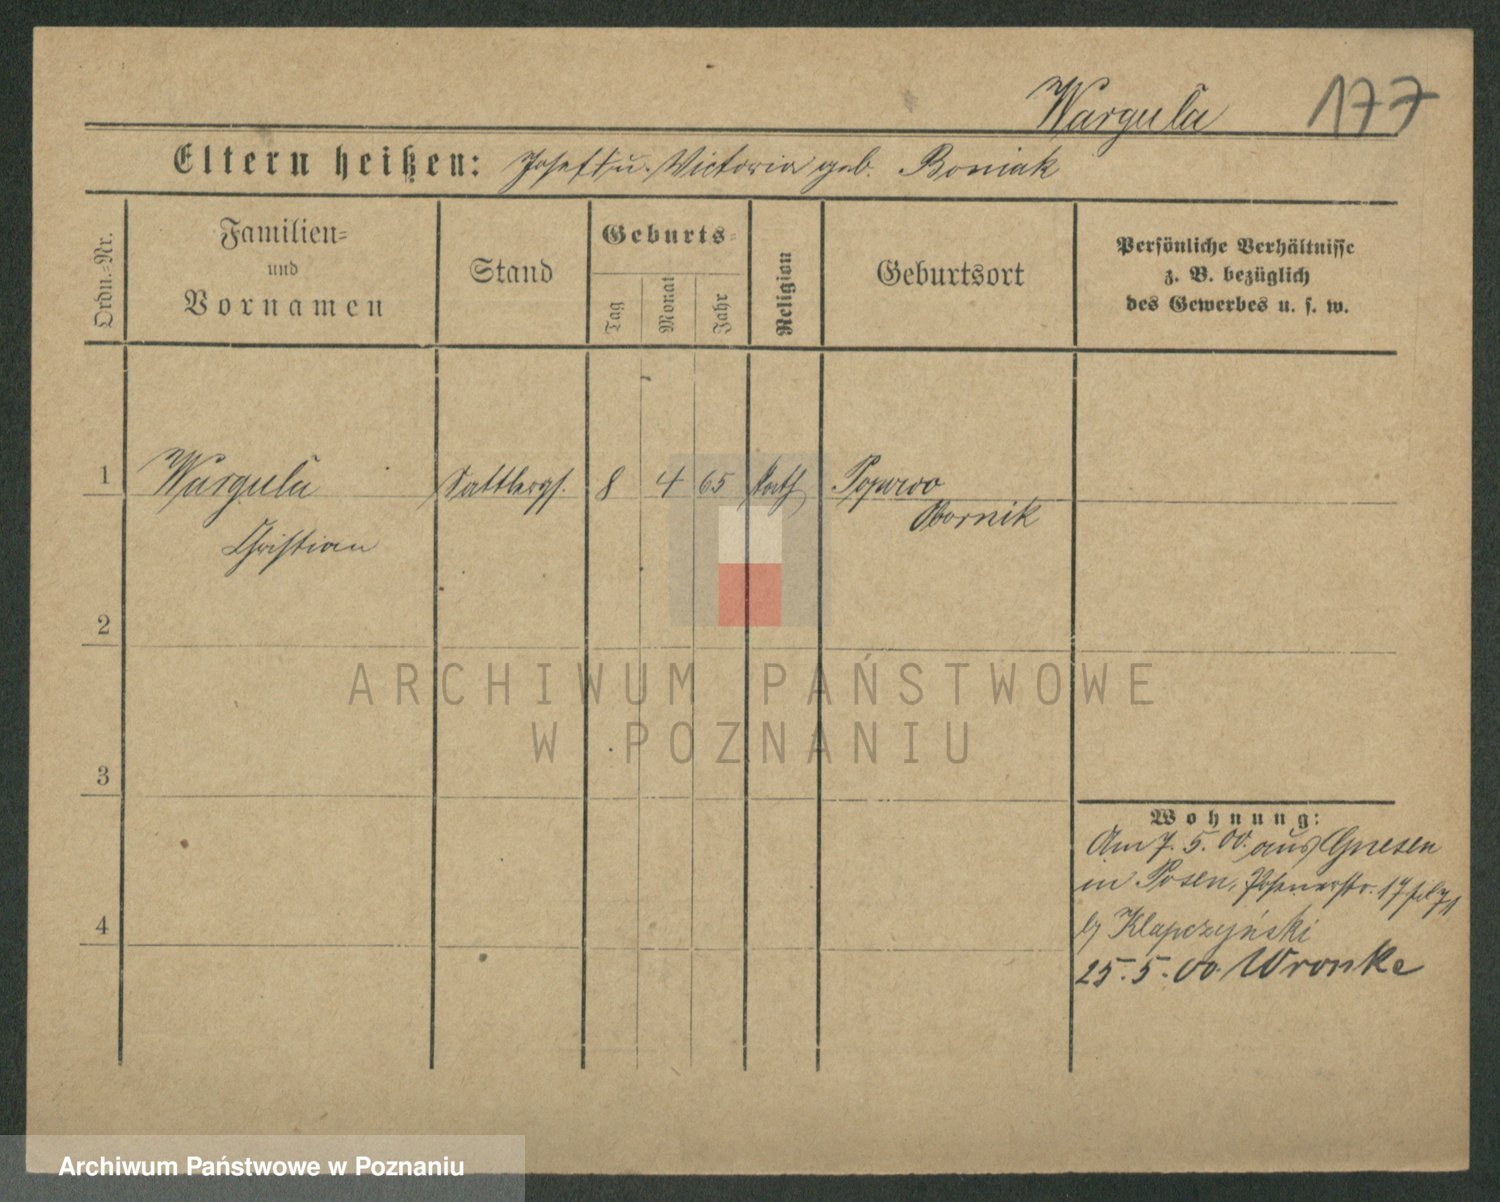 Wargula 177
Eltern heißen: Josef u. Victoria geb. Boniak
Ordn.-Nr.
Familien-
und
Vornamen
Stand
Geburts-
Tag
Monat
Jahr
Religion
Geburtsort
Persönliche Verhältnisse
z. B. bezüglich
des Gewerbes u. s. w.
1 Wargula Sattlergs. 8 4 65 kath Popowo
Obornik
Christian
2
ARCHIWUM PAŃSTWOWE
W POZNANIU
3
Wohnung:
Am 7. 5. 00. aus Gnesen
in Posen, Posenerstr. 17
b/ Klapczyński
4
25. 5. 00. Wronke
Archiwum Państwowe w Poznaniu